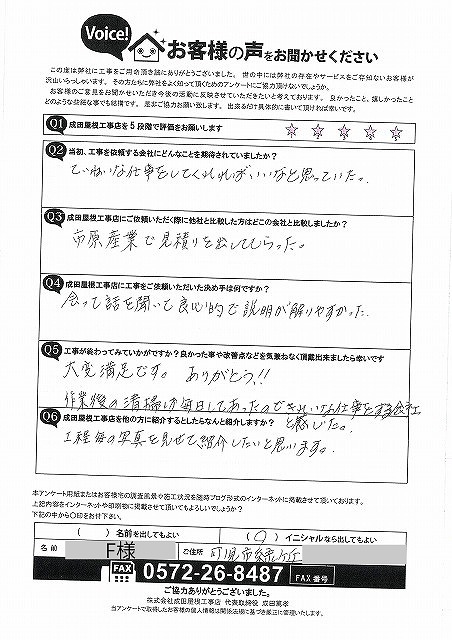 Voice!
お客様の声をお聞かせください
この度は弊社に工事をご用命頂き誠にありがとうございました。世の中には弊社の存在やサービスをご存知ないお客様が
沢山いらっしゃいます。その方たちに弊社をよく知って頂くためのアンケートにご協力頂けないでしょうか。
お客様のご意見をお聞かせいただき今後の活動に反映させていただきたいと考えております。良かったこと、嬉しかったこと
どのような些細な事でも結構です。是非ご協力お願い致します。出来るだけ具体的に書いて頂ければ幸いです。
Q1 成田屋根工事店を5段階で評価をお願いします ☆ ☆ ☆ ☆ ☆
Q2 当初、工事を依頼する会社にどんなことを期待されていましたか?
ていねいな仕事をしてくれればいいなと思っていた。
Q3 成田屋根工事店にご依頼いただく際に他社と比較した方はどこの会社と比較しましたか?
市原産業で見積りを出してもらった。
Q4 成田屋根工事店に工事をご依頼いただいた決め手は何ですか?
会って話を聞いて良心的で説明が解りやすかった。
Q5 工事が終わってみていかがですか?良かった事や改善点などを気兼ねなく頂戴出来ましたら幸いです
大変満足です。ありがとう!!
作業後の清掃も毎日してあったのできれいな仕事をする会社
と感じた。
Q6 成田屋根工事店を他の方に紹介するとしたらなんと紹介しますか?
工程毎の写真を見せて紹介したいと思います。
本アンケート用紙またはお客様宅の調査風景や施工状況を随時ブログ形式のインターネットに掲載させて頂いております。
上記内容をインターネットや印刷物に掲載させて頂いてもよろしいでしょうか?
下記の中から○印をお付下さい。
( )名前を出してもよい (○)イニシャルなら出してもよい
名前 F様 ご住所 可児市緑ヶ丘
FAX 0572-26-8487 FAX番号
ご協力ありがとうございました。
株式会社成田屋根工事店 代表取締役 成田崇孝
当アンケートで取得したお客様の個人情報は関係法規に基づき厳正に管理いたします。